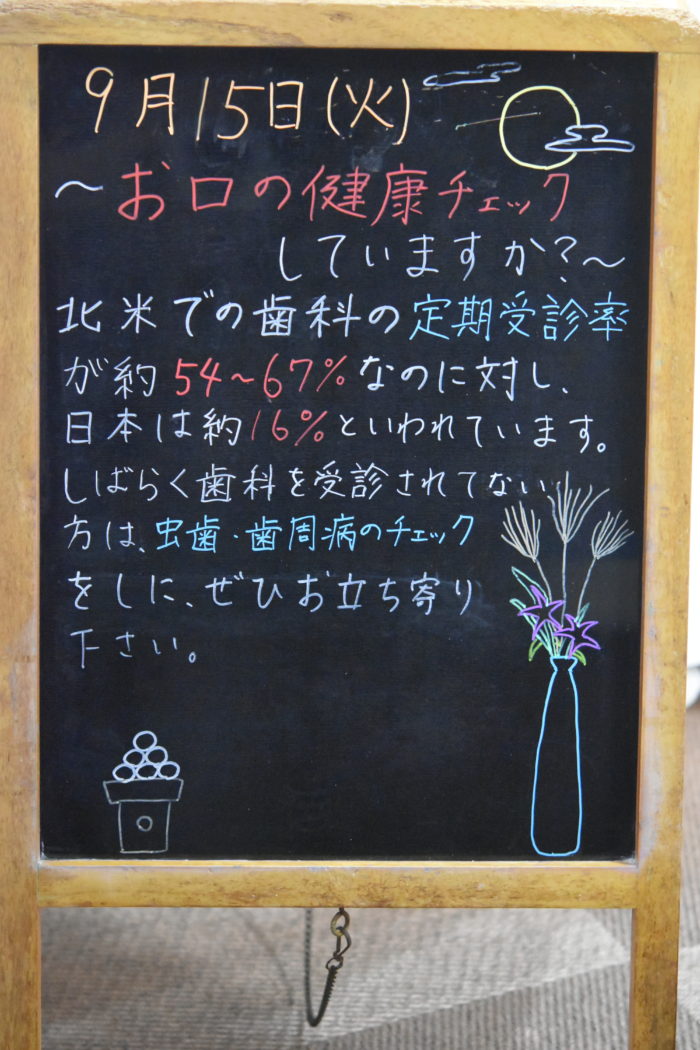 9月15日(火)
～お口の健康チェック
していますか?～
北米での歯科の定期受診率
が約54～67%なのに対し、
日本は約16%といわれています。
しばらく歯科を受診されてない
方は、虫歯・歯周病のチェック
をしに、ぜひお立ち寄り
下さい。